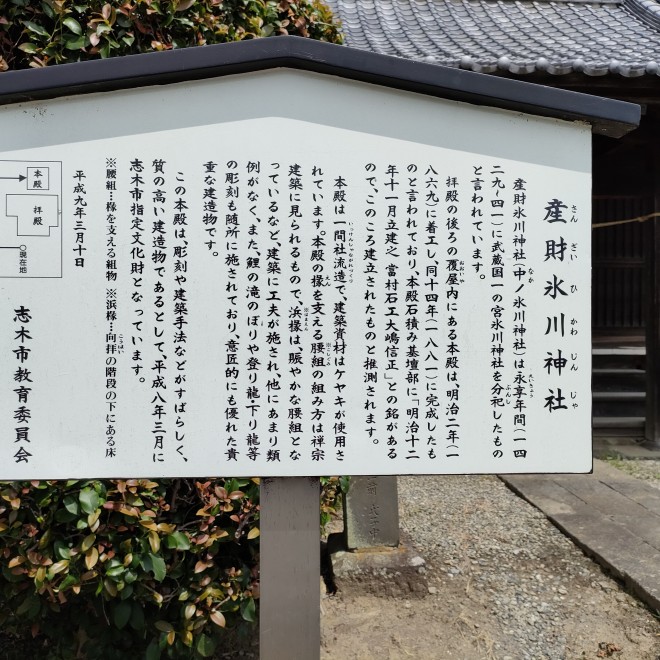 産財氷川神社
さんざいひかわじんじゃ
産財氷川神社(中ノ氷川神社)は永享年間(一四
二九~四一)に武蔵国一の宮氷川神社を分祀したもの
と言われています。
拝殿の後ろの覆屋内にある本殿は、明治二年(一
八六九)に着工し、同十四年(一八八一)に完成したも
のと言われており、本殿石積み基壇部に「明治十二
年十一月立建之 當村石工大嶋信正」との銘がある
ので、このころ建立されたものと推測されます。
本殿は一間社流造で、建築資材はケヤキが使用さ
れています。本殿の縁を支える腰組の組み方は禅宗
建築に見られるもので、浜縁は、賑やかな腰組とな
っているなど、建築に工夫が施され、他にあまり類
例がなく、また、鯉の滝のぼりや登り龍下り龍等
の彫刻も随所に施されており、意匠的にも優れた貴
重な建造物です。
この本殿は、彫刻や建築手法などがすばらしく、
質の高い建造物であるとして、平成八年三月に
志木市指定文化財となっています。
※腰組…縁を支える組物 ※浜縁…向拝の階段の下にある床
平成九年三月十日
志木市教育委員会
本殿
拝殿
現在地